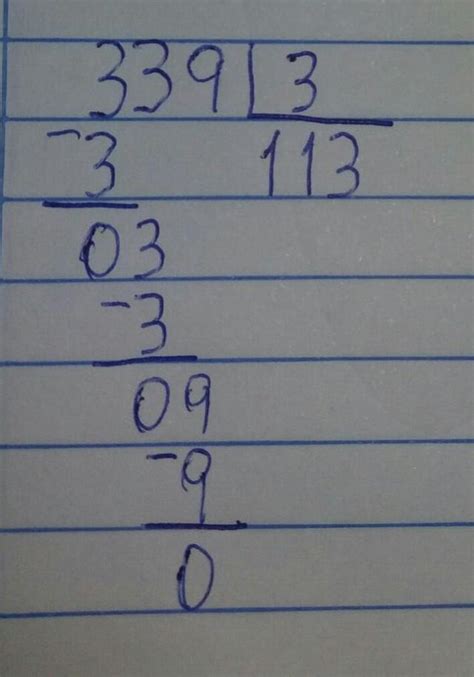 339 3
-3 113
03
-3
09
-9
0